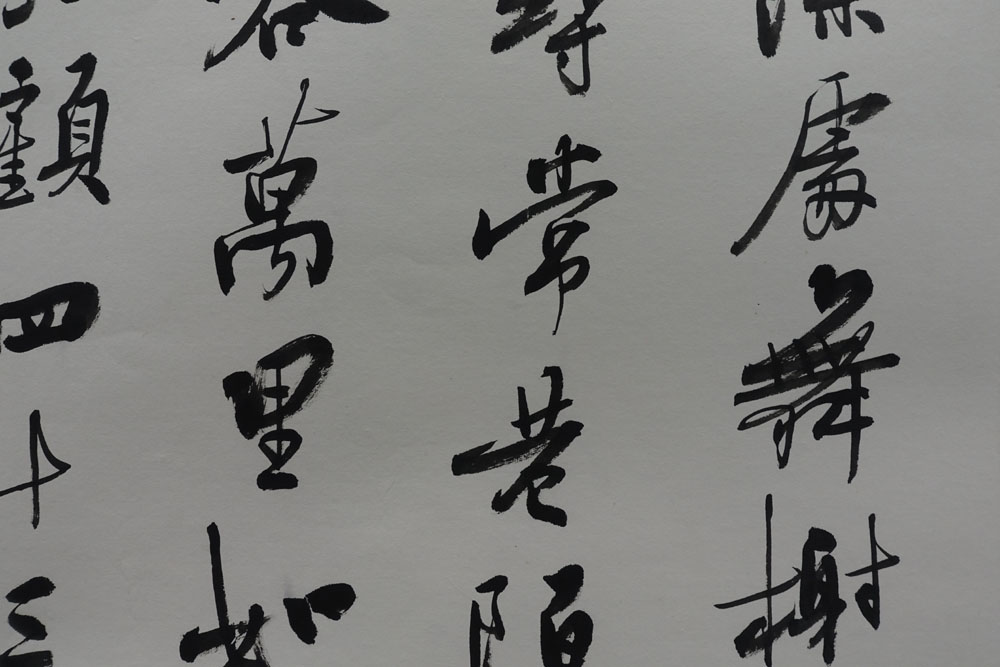 謀處舞榭
尋常巷陌
吞萬里如
顧四十三